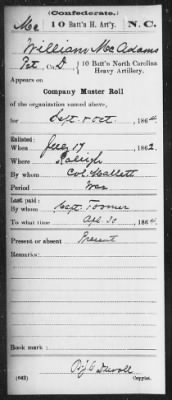 (Confederate.)
Mc 10 Batt's H. Art'y. N. C.
William McAdams
Pvt, Co. D 10 Batt's North Carolina Heavy Artillery.
Appears on
Company Muster Roll
of the organization named above,
for Sept. & Oct, 1864.
Enlisted:
When July 17 1862.
Where Raleigh
By whom Col. Mallett
Period War
Last paid:
By whom Capt. Toomer
To what time Apl. 30 1864.
Present or absent Present
Remarks:
Book mark:
(642)
Copyist.